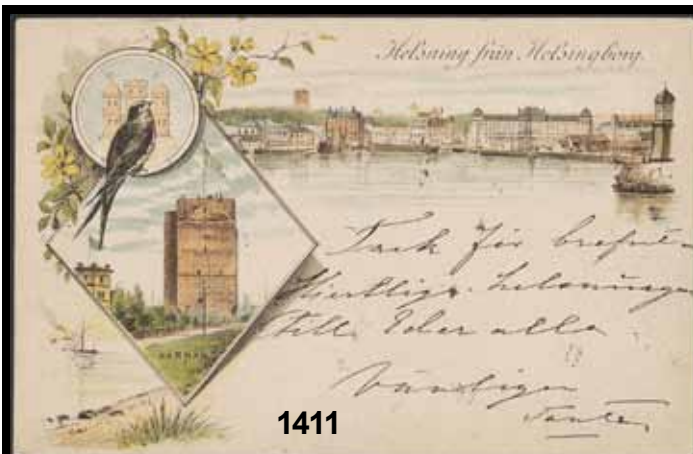 Helsning från Helsingborg.
Tack för brefvet
Hjertliga helsningar
till Eder alla
Vänligen
Tante
KÄRNAN
1411